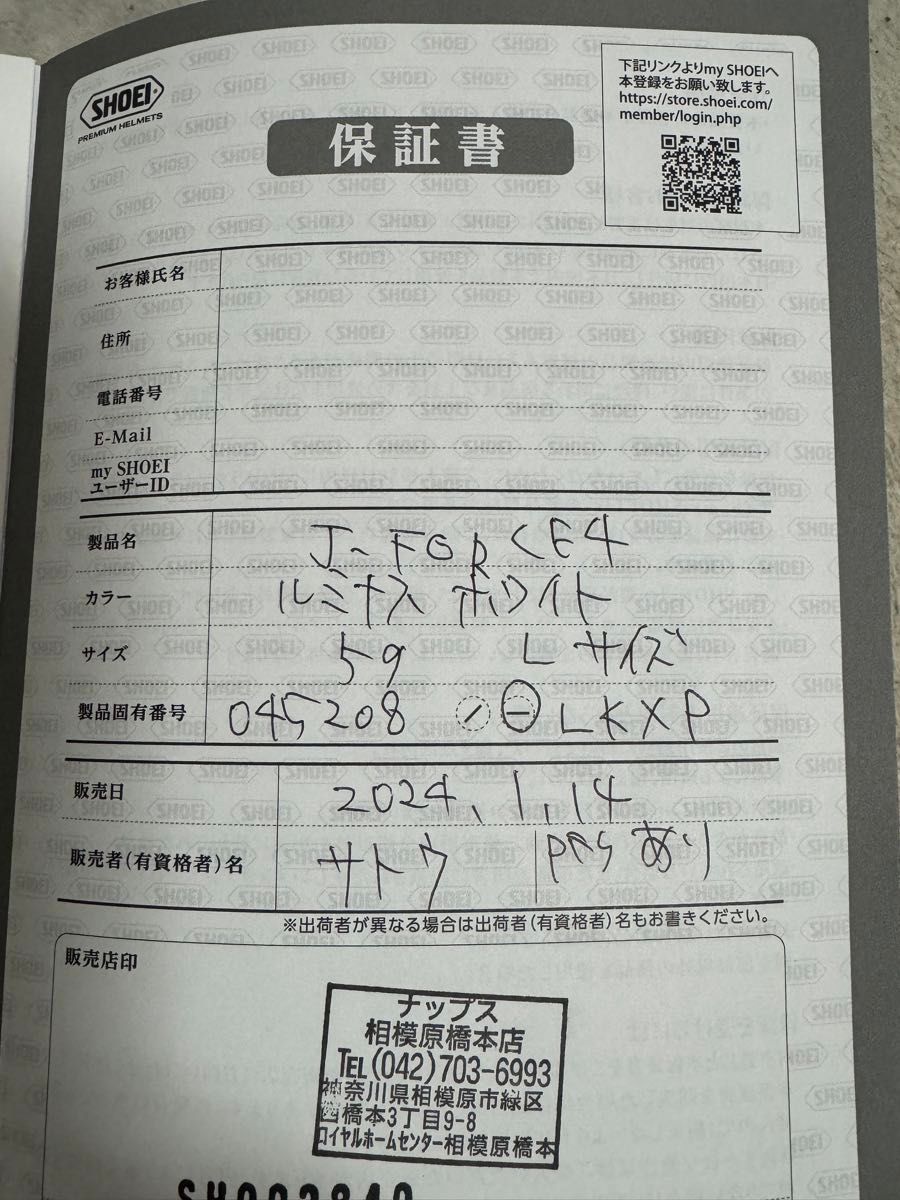 SHOEI
PREMIUM HELMETS
保証書
下記リンクよりmy SHOEIへ
本登録をお願い致します。
https://store.shoei.com/
member/login.php
お客様氏名
住所
電話番号
E-Mail
my SHOEI
ユーザーID
製品名 J-FORCE4
カラー ルミナスホワイト
サイズ 59 Lサイズ
製品固有番号 045208 LKXP
販売日 2024.1.14
販売者(有資格者)名 サトウ PFS あり
※出荷者が異なる場合は出荷者(有資格者)名もお書きください。
販売店印
ナップス
相模原橋本店
TEL(042)703-6993
神奈川県相模原市緑区
西橋本3丁目9-8
ロイヤルホームセンター相模原橋本